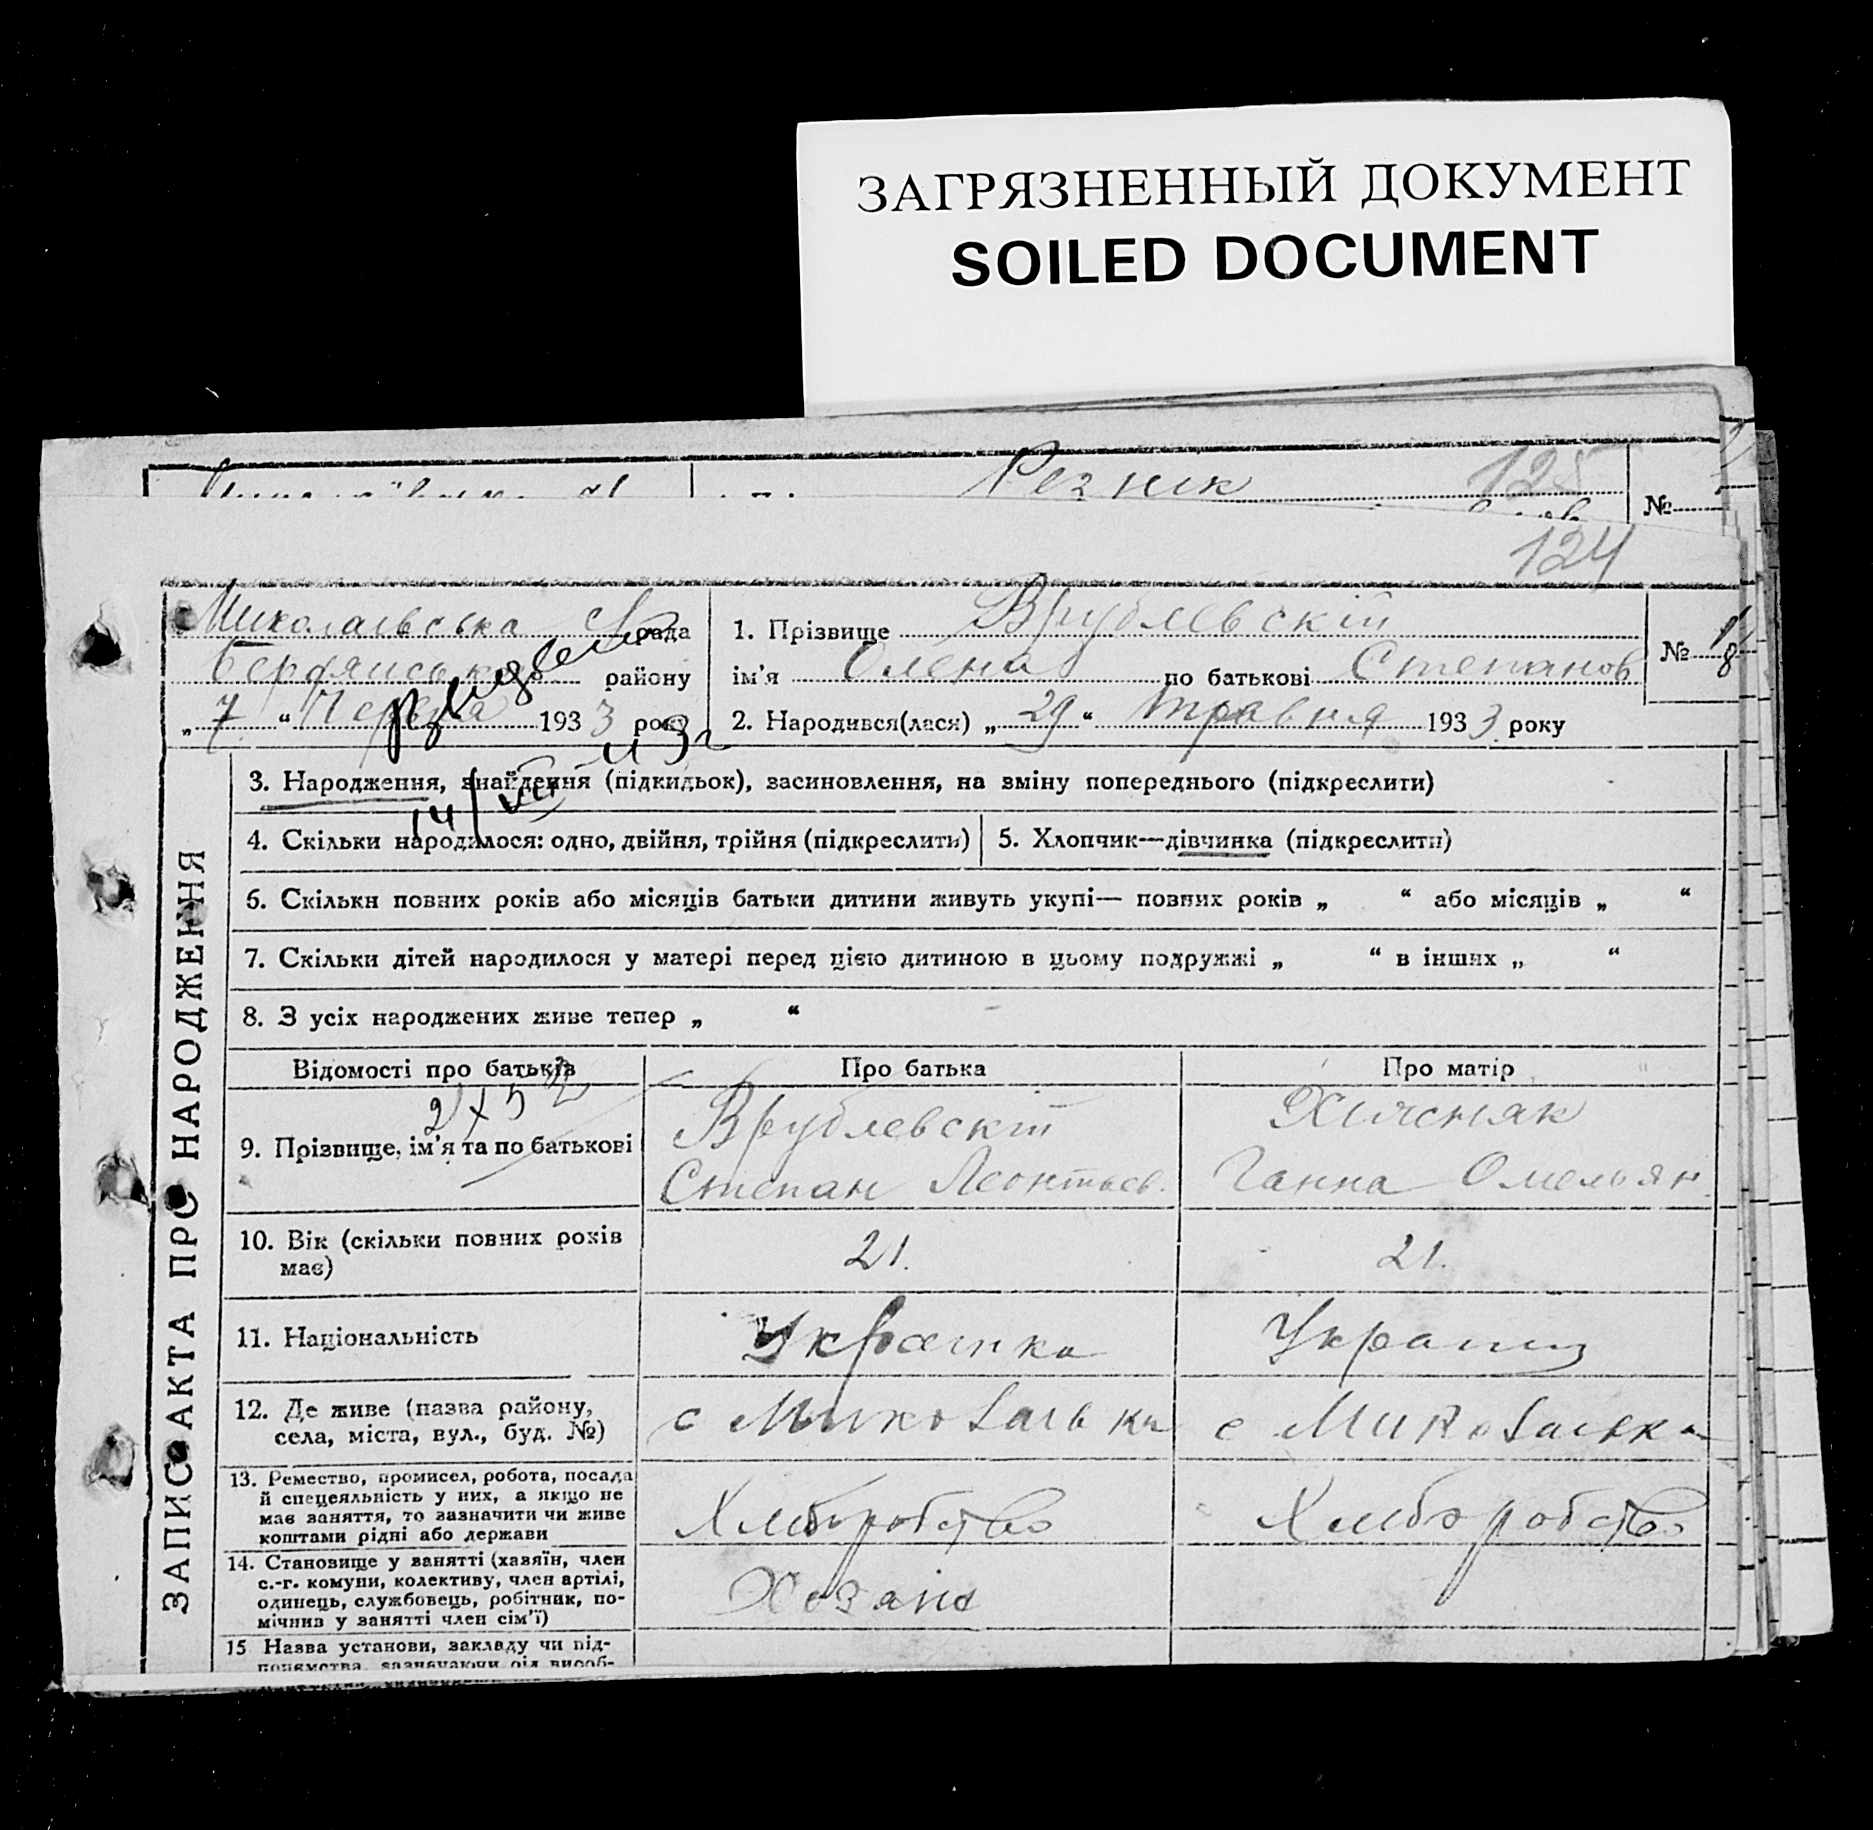 ЗАГРЯЗНЕННЫЙ ДОКУМЕНТ
SOILED DOCUMENT
Резник 125
№
124
Миколаївська С рада
1. Прізвище Врублевскій
№ 8
району
ім'я Олена по батькові Степанов
„ 7 “ Червня 1933 року
2. Народився(лася) „ 29 “ травня 1933 року
ЗАПИС АКТА ПРО НАРОДЖЕННЯ
3. Народження, знайдення (підкидьок), засиновлення, на зміну попереднього (підкреслити)
4. Скільки народилося: одно, двійня, трійня (підкреслити)
5. Хлопчик—дівчинка (підкреслити)
6. Скільки повних років або місяців батьки дитини живуть укупі— повних років „ “ або місяців „ “
7. Скільки дітей народилося у матері перед цією дитиною в цьому подружжі „ “ в інших „ “
8. З усіх народжених живе тепер „ “
Відомості про батьків
Про батька
Про матір
9. Прізвище, ім'я та по батькові
Врублевскій
Степан Леонтьев.
Ганна Омельян.
10. Вік (скільки повних років
має)
21.
21.
11. Національність
Украинка
12. Де живе (назва району,
села, міста, вул., буд. №)
13. Ремество, промисел, робота, посада
й спецеяльність у них, а якщо не
має заняття, то зазначити чи живе
коштами рідні або держави
Хліборобство
Хліборобство
14. Становище у занятті (хазяїн, член
с.-г. комуни, колективу, член артілі,
одинець, службовець, робітник, по-
мічнив у занятті член сім'ї)
15 Назва установи, закладу чи під-
приємства, зазначаючи рід вироб-